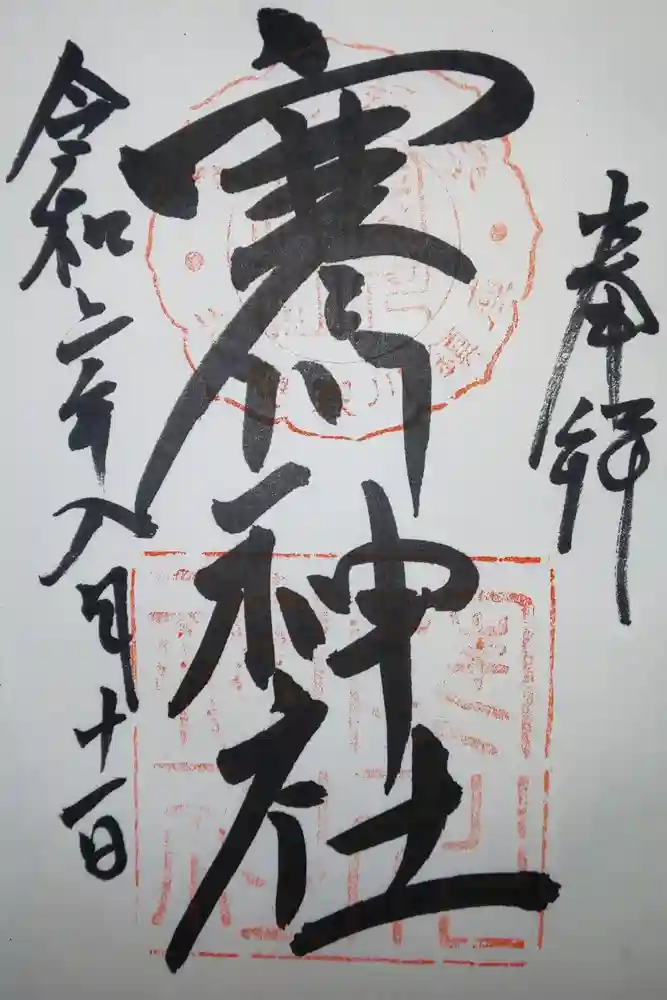 奉拜
寒川神社
令和六年八月十一日